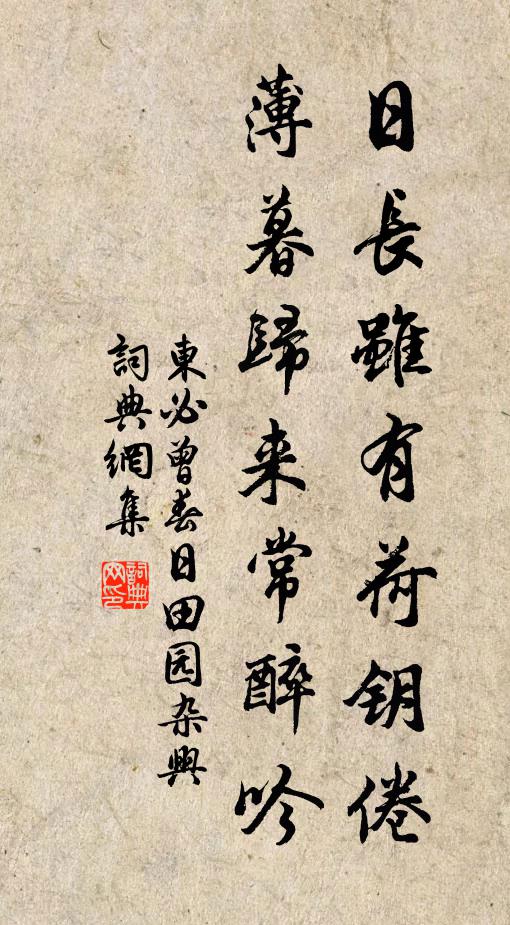 日長雖有荷钥倦
薄暮歸来常醉吟
東必曾春日田园杂興
詞典網集
詞典网印